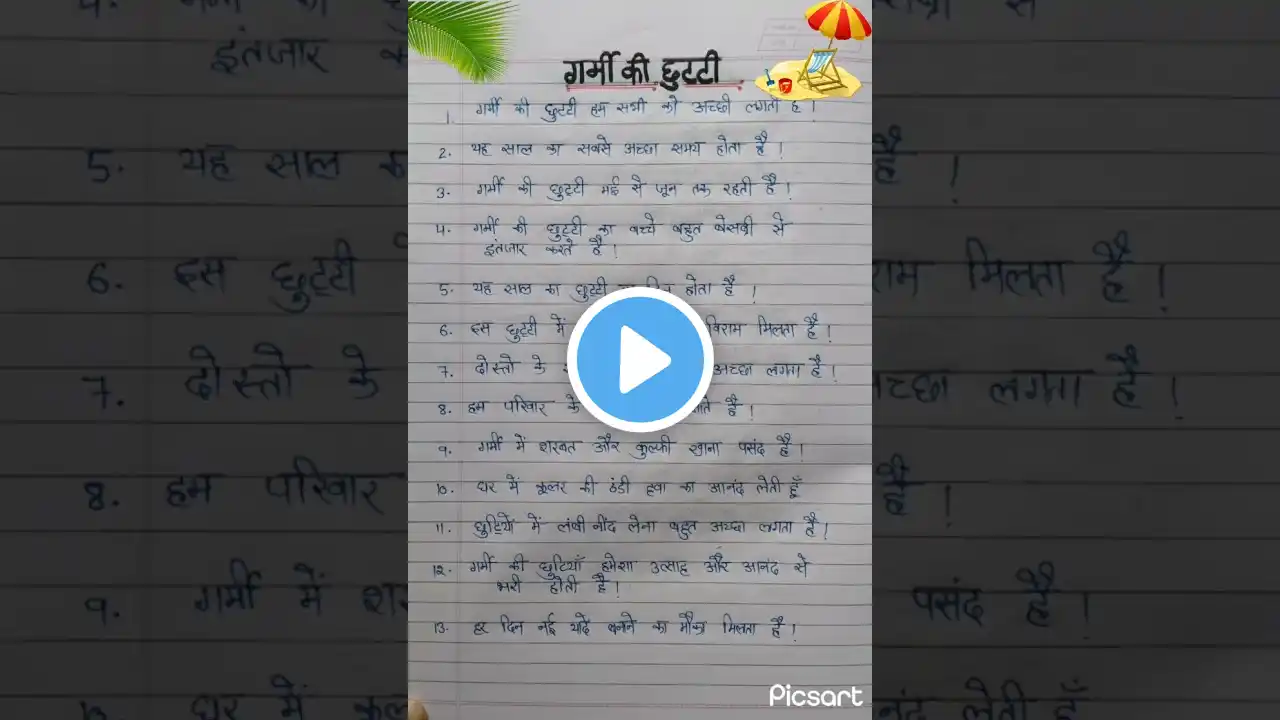 गर्मी की छुट्टी
1. गर्मी की छुट्टी हम सभी को अच्छी लगती है !
2. यह साल का सबसे अच्छा समय होता है !
3. गर्मी की छुट्टी मई से जून तक रहती है !
4. गर्मी की छुट्टी का बच्चे बहुत बेसब्री से
इंतजार करते है !
5. यह साल का छुट्टी होता है !
6. इस छुट्टी में विराम मिलता है !
7. दोस्तो के अच्छा लगता है !
8. हम परिवार के है !
9. गर्मी में शरबत और कुल्फी खाना पसंद है !
10. घर में कूलर की ठंडी हवा का आनंद लेती हूँ
11. छुट्टियों में लंबी नींद लेना बहुत अच्छा लगता है !
12. गर्मी की छुटियाँ हमेशा उत्साह और आनंद से
भरी होती है !
13. हर दिन नई यादें बनने का मौका मिलता है !
Picsart